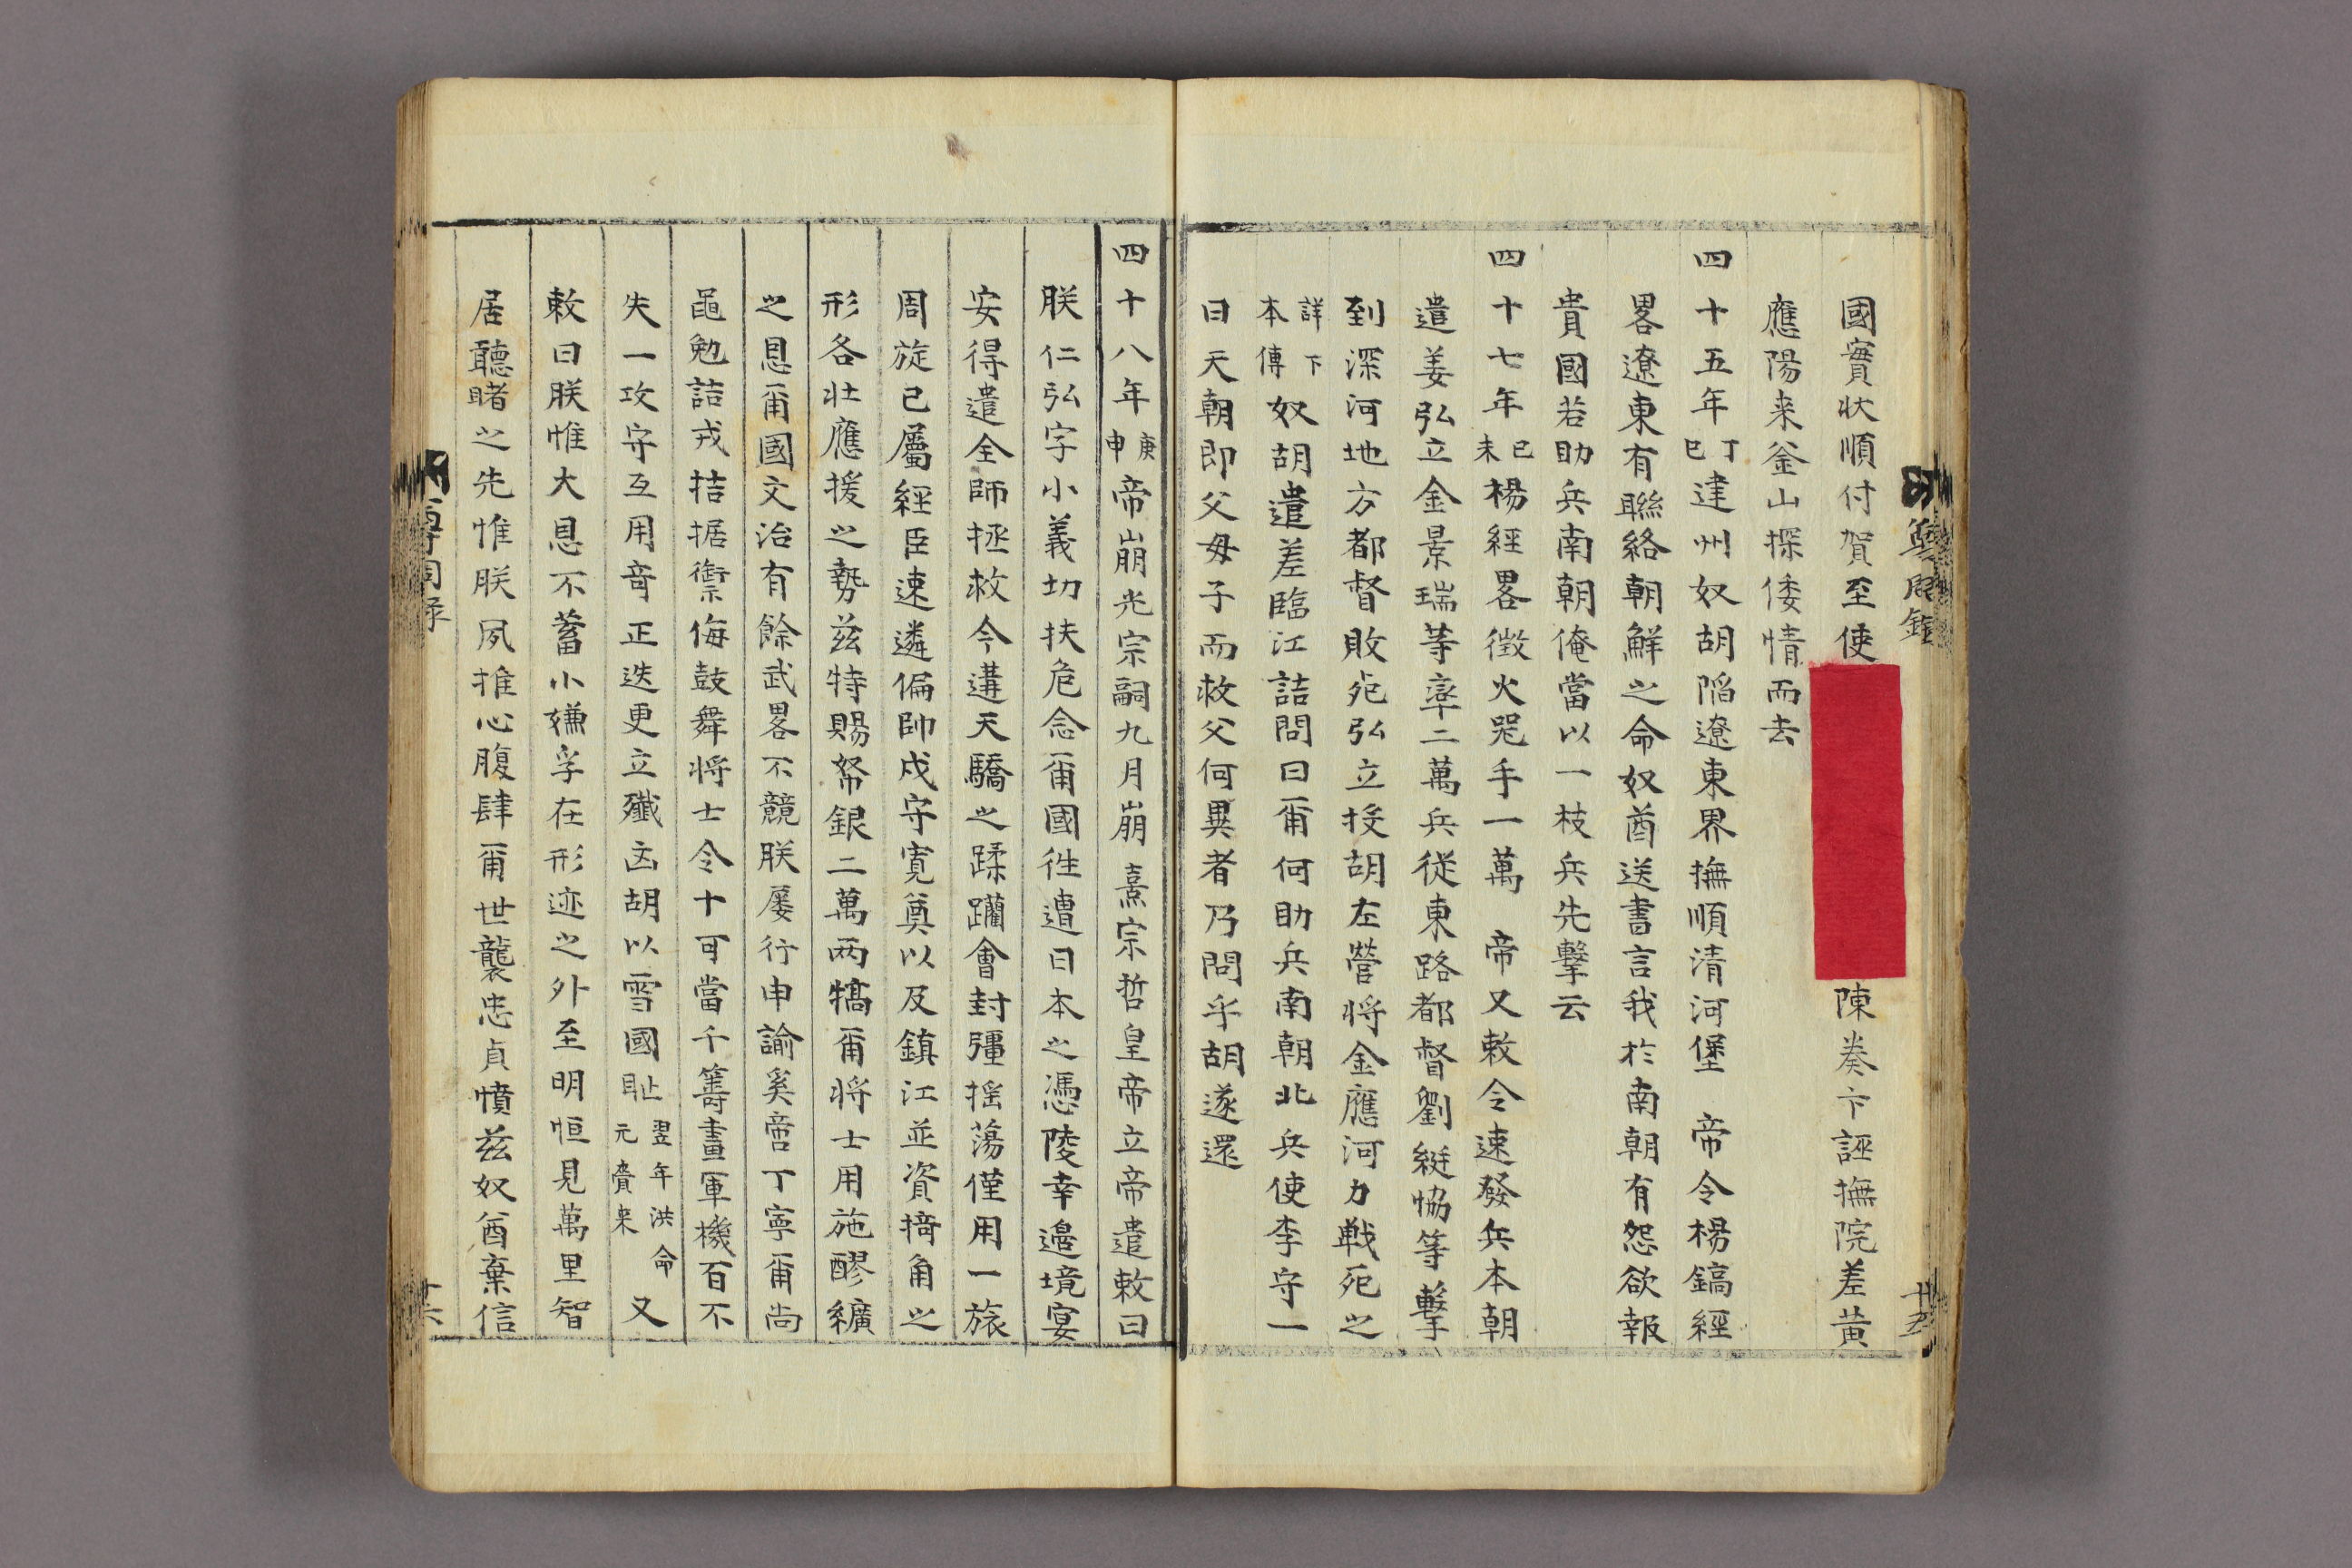 國實狀順付賀至使 陳奏卞誣撫院差黃
應陽来釜山探倭情而去
四十五年丁巳建州奴胡陷遼東界撫順清河堡 帝令楊鎬經
畧遼東有聯絡朝鮮之命奴酋送書言我於南朝有怨欲報
貴國若助兵南朝俺當以一枝兵先擊云
四十七年己未楊經畧徵火咒手一萬 帝又敕令速發兵本朝
遣姜弘立金景瑞等率二萬兵從東路都督劉綎恊等擊
到深河地方都督敗死弘立投胡左營將金應河力戰死之
詳下本傳奴胡遣差臨江詰問曰爾何助兵南朝北兵使李守一
曰天朝即父母子而救父何異者乃問乎胡遂還
四十八年庚申帝崩光宗嗣九月崩 熹宗哲皇帝立帝遣敕曰
朕仁弘字小義切扶危念爾國徃遭日本之憑陵幸邉境宴
安得遣全師拯救今遘天驕之蹂躪會封彊揺蕩僅用一旅
周旋已屬經臣速遴偏帥戍守寛奠以及鎮江並資掎角之
形各壮應援之勢兹特賜帑銀二萬两犒爾將士用施醪纊
之恩爾國文治有餘武畧不競朕屡行申諭奚啻丁寕爾尚
黽勉詰戎拮据禦侮鼓舞將士令十可當千籌畫軍機百不
失一攻守互用奇正迭更立殲凶胡以雪國耻翌年洪命元賫来 又
敕曰朕惟大恩不蓄小嫌孚在形迹之外至明恒見萬里智
居聽睹之先惟朕夙推心腹肆爾世襲忠貞憤兹奴酋棄信